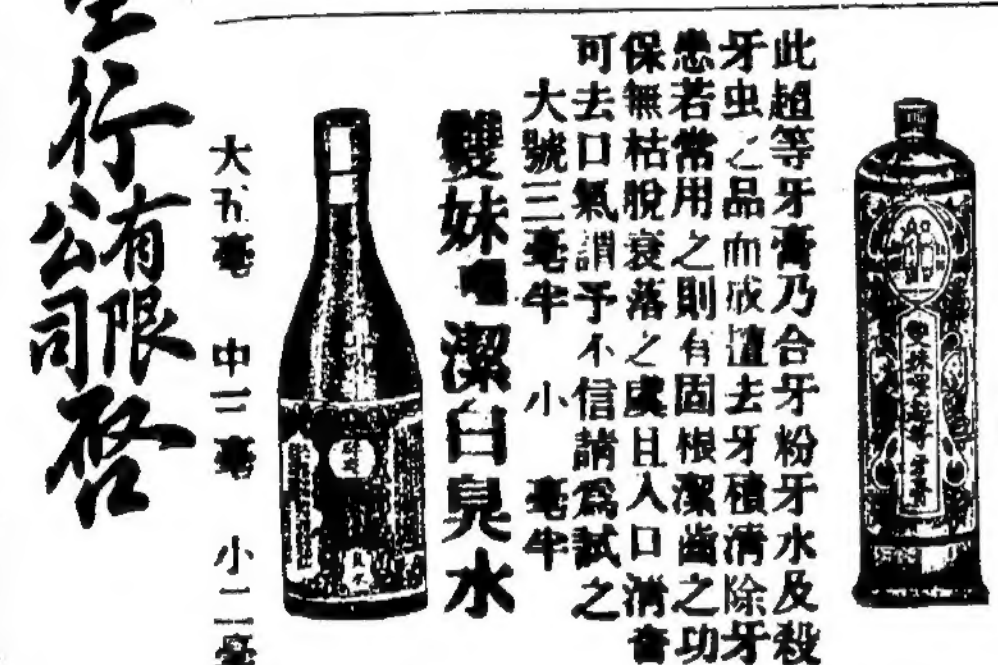 雙妹嘜超等牙膏
此超等牙膏乃合牙粉牙水及殺
牙虫之品而成擅去牙積清除牙
患若常用之則有固根潔齒之功
保無枯脫衰落之虞且入口清香
可去口氣謂予不信請爲試之
大號三毫半 小 毫半
雙妹嘜潔白臭水
臭水
大五毫 中三毫 小二毫
行有限公司啓